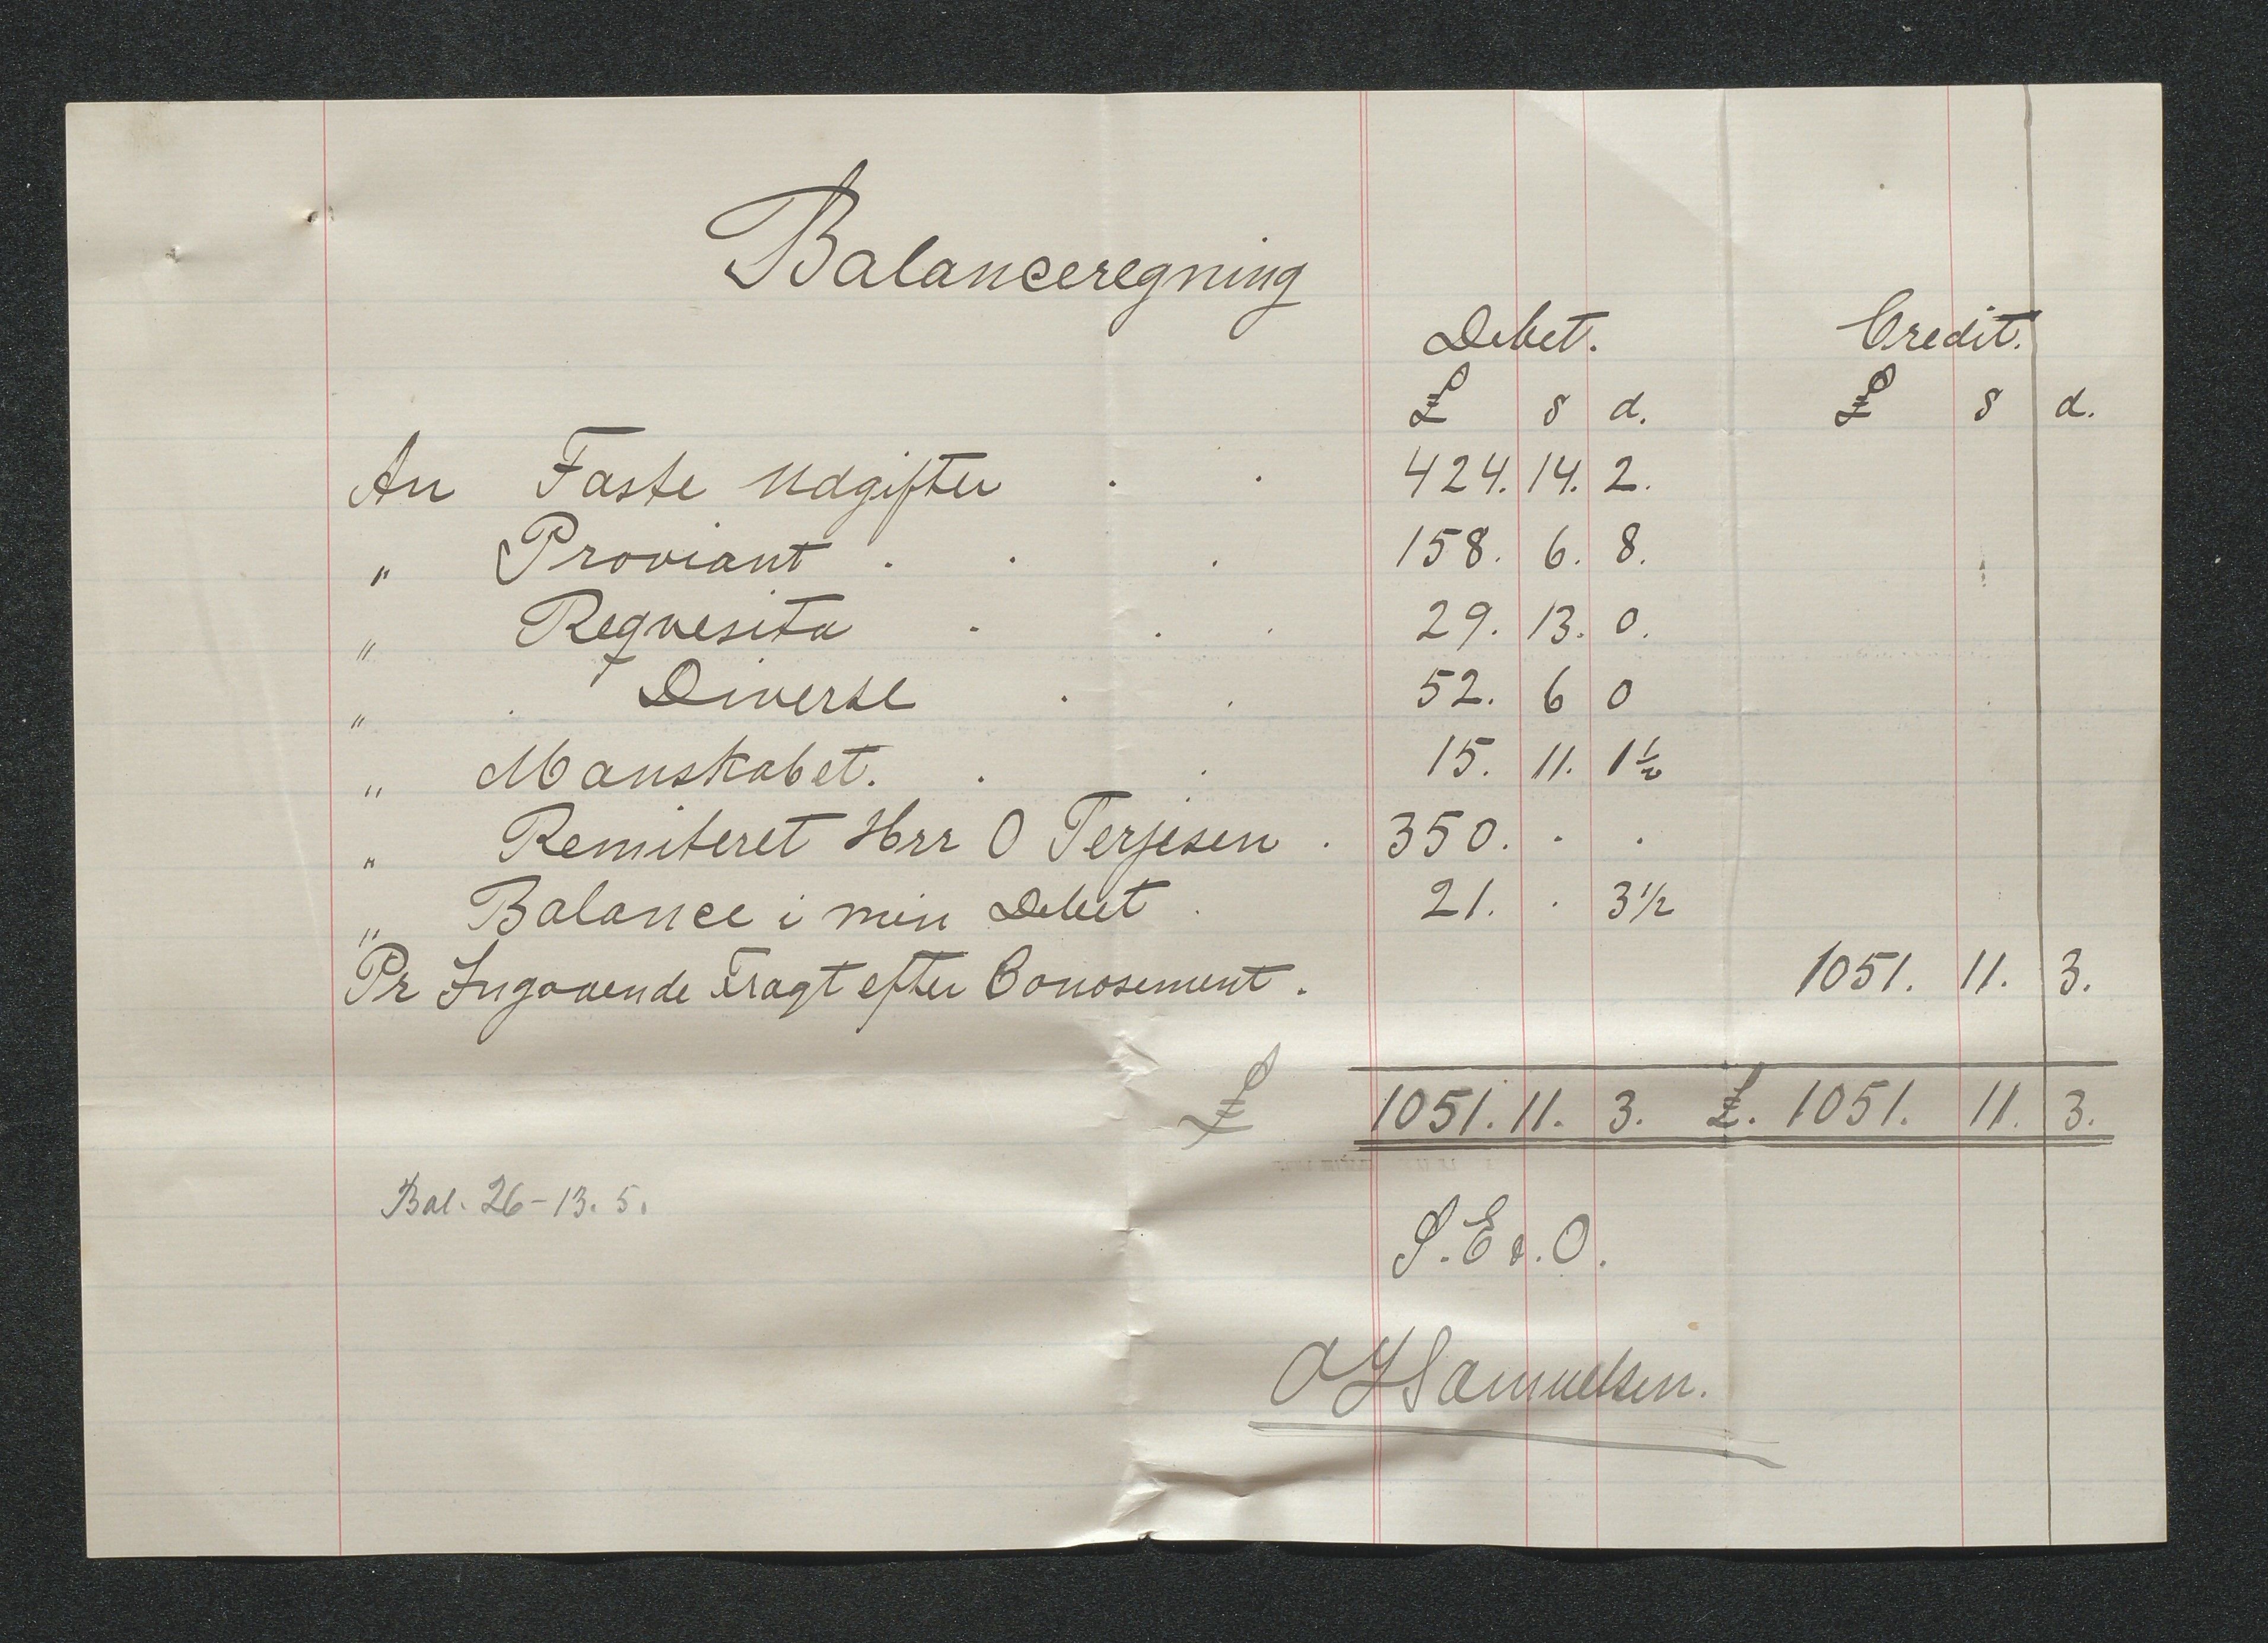 Balanceregning
Debet. Credit.
£ s d. £ s d.
An Faste Udgifter . . 424. 14. 2.
" Proviant . . . 158. 6. 8.
" Reqvesita . . . 29. 13. 0.
" . Diverse . . 52. 6 0
" Manskabet. . . 15. 11. 1½
" Remiteret Hrr O Terjesen . 350. . .
" Balance i min Debet . 21. . 3½
Pr Ingaaende Fragt efter Conosement . 1051. 11. 3.
£ 1051. 11. 3. £. 1051. 11. 3.
Bal. 26-13. 5.
S. E. & O.
O J Samuelsen.